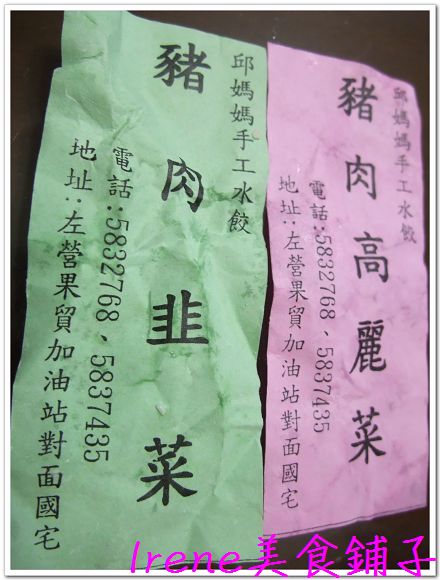 邱媽媽手工水餃
豬肉韭菜
電話:5832768、5837435
地址:左營果貿加油站對面國宅
邱媽媽手工水餃
豬肉高麗菜
電話:5832768、5837435
地址:左營果貿加油站對面國宅
Irene美食鋪子